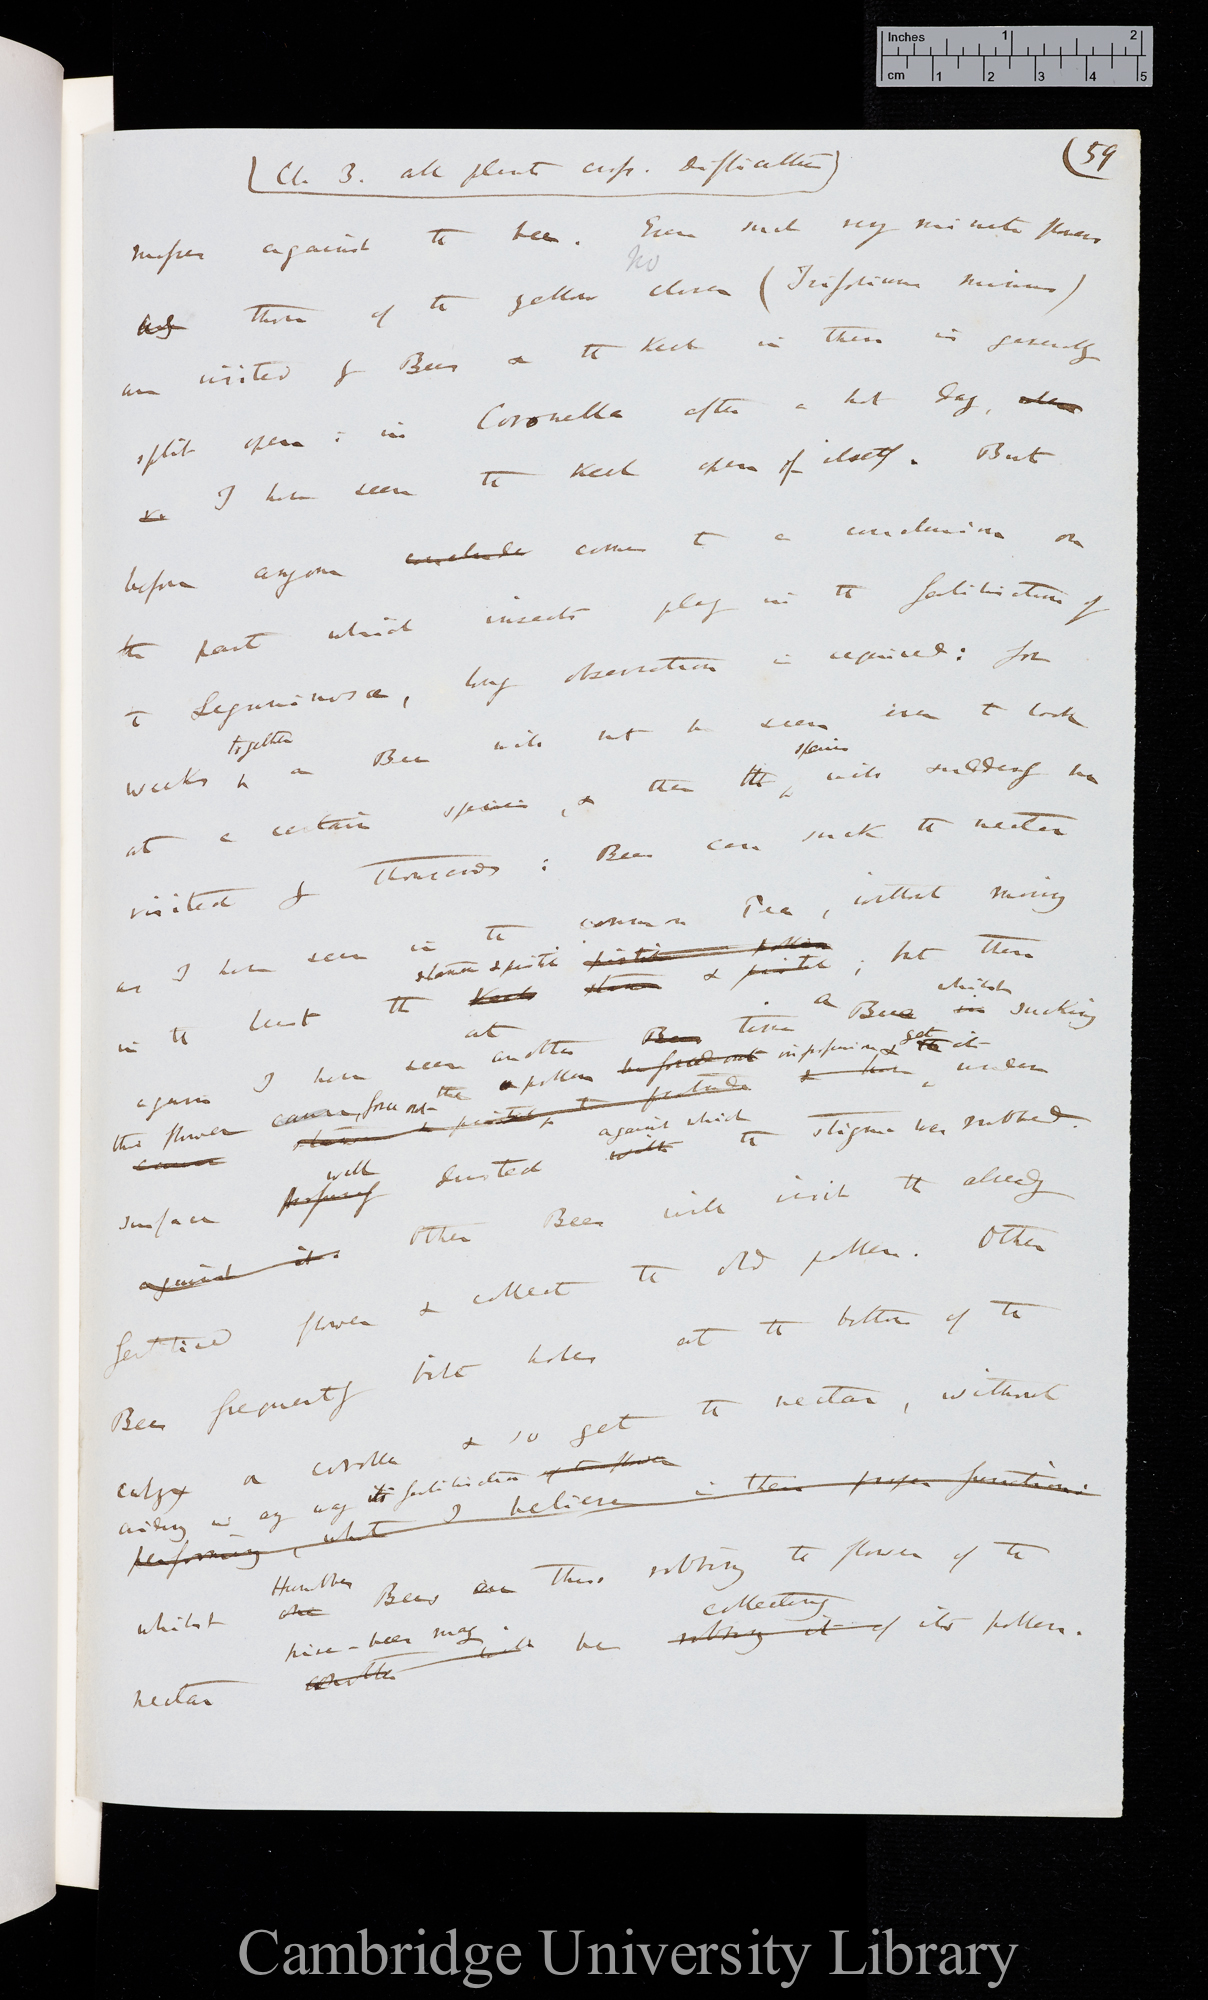 Inches 1 2
cm 1 2 3 4 5
(59
(Ch. 3. all plants cross. Difficulties)
masses against the bee. Even such very minute flowers
no
as those of the yellow clover (Trifolium minus)
are visited by Bees & the Keel in them is generally
split open: in Coronella after a hot day,
I have seen the Keel open of itself. But
before anyone conclude comes to a conclusion on
the part which insects play in the fertilisation of
the Leguminosæ, long observation is required: for
weeks together a Bee will not be seen even to look
at a certain species, & then the species will suddenly be
visited by thousands: Bees can suck the nectar
as I have seen in the common Pea, without moving
in the least the Keel stamen & pistil pistil pollen & pistil; but then
again I have seen at another Bee time a Bee in whilst sucking
this flower cause force out the pollen be forced out & get its under
cause stamen & pistil to protrude
surface well dusted with against which the stigma was rubbed.
against it. Other Bees will visit the already
fertilised flower & collect the old pollen. Other
Bees frequently bite holes at the bottom of the
calyx or corolla & so get the nectar, without
aiding in any way its fertilisation of the flower
performing, what I believe is their proper function:
whilst one Humble Bees are thus robbing the flower of the
nectar hive-bees may be robbing it collecting of its pollen.
Cambridge University Library